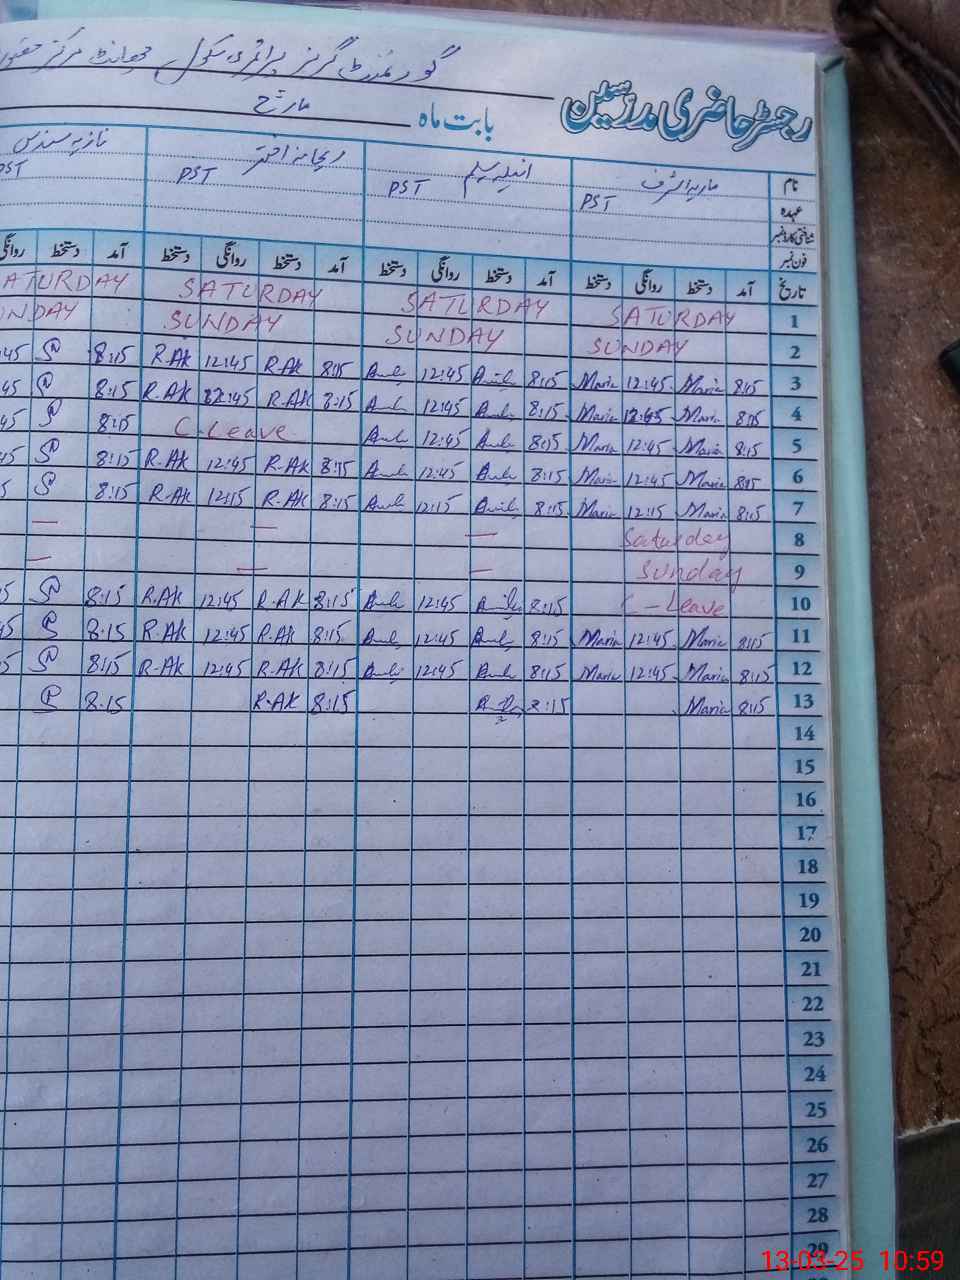 رجسٹر حاضری مدرسین گورنمنٹ گرلز پرائمری سکول مرکز
بابت ماہ مارچ
نام ماریہ اشرف انیلہ سلیم ریحانہ اختر نازیہ سندس
عہدہ PST PST PST PST
شناختی کارڈ نمبر
فون نمبر
تاریخ آمد دستخط روانگی دستخط آمد دستخط روانگی دستخط آمد دستخط روانگی دستخط آمد دستخط روانگی
1 SATURDAY SATURDAY SATURDAY ATURDAY
2 SUNDAY SUNDAY SUNDAY NDAY
3 8:15 Maria 12:45 Maria 8:15 12:45 8:15 R.AK 12:45 R.AK 8:15 :45
4 8:15 Maria 12:45 Maria 8:15 12:45 8:15 R.AK 12:45 R.AK 8:15 :45
5 8:15 Maria 12:45 Maria 8:15 12:45 C Leave 8:15 45
6 8:15 Maria 12:45 Maria 8:15 12:45 8:15 R.AK 12:45 R.AK 8:15 45
7 8:15 Maria 12:15 Maria 8:15 12:15 8:15 R.AK 12:15 R.AK 8:15 5
8 Saturday — — —
9 Sunday — — —
10 C-Leave 8:15 12:45 8:15 R.AK 12:45 R.AK 8:15 5
11 8:15 Maria 12:45 Maria 8:15 12:45 8:15 R.AK 12:45 R.AK 8:15 45
12 8:15 Maria 12:45 Maria 8:15 12:45 8:15 R.AK 12:45 R.AK 8:15 5
13 8:15 Maria 8:15 8:15 R.AK 8:15
14
15
16
17
18
19
20
21
22
23
24
25
26
27
28
29
13-03-25 10:59